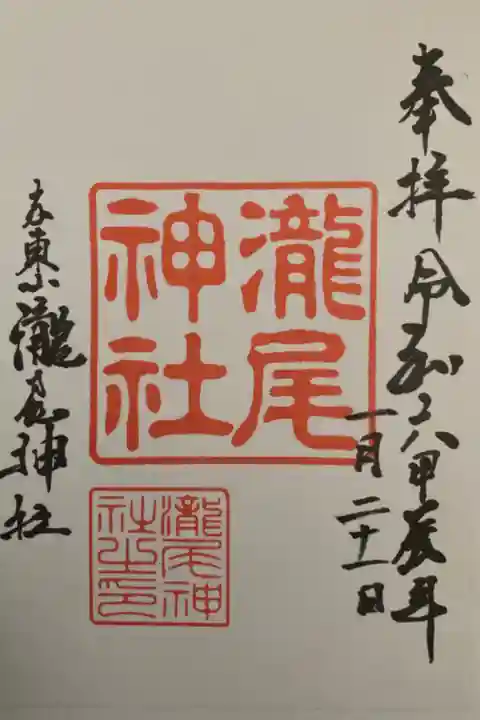 奉拝 令和六甲辰年
一月二十一日
瀧尾
神社
瀧尾神
社之印
瀧尾神社